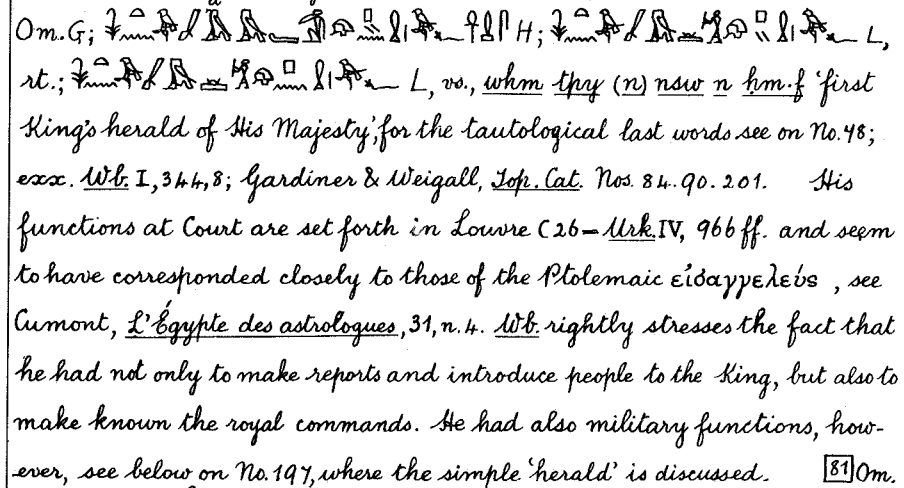 Om. G; H; L,
rt.; L, vs., wḥm tpy (n) nsw n ḥm·f 'first
King's herald of His Majesty', for the tautological last words see on No. 48;
exx. Wb. I, 344, 8; Gardiner & Weigall, Top. Cat. Nos. 84. 90. 201. His
functions at Court are set forth in Louvre C 26 = Urk. IV, 966 ff. and seem
to have corresponded closely to those of the Ptolemaic εἰσαγγελεύς, see
Cumont, L'Égypte des astrologues, 31, n. 4. Wb. rightly stresses the fact that
he had not only to make reports and introduce people to the King, but also to
make known the royal commands. He had also military functions, how-
ever, see below on No. 197, where the simple 'herald' is discussed. 81 Om.